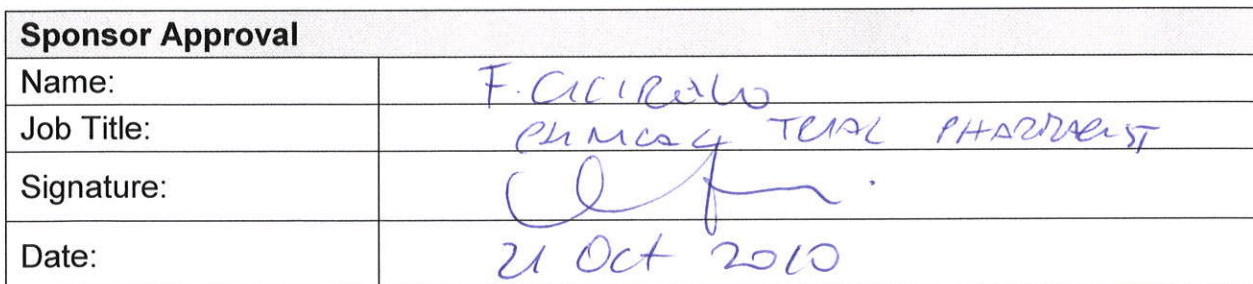 Sponsor Approval
Name: F. CICIRELLO
Job Title: CLINICAL TRIAL PHARMACIST
Signature:
Date: 21 Oct 2010